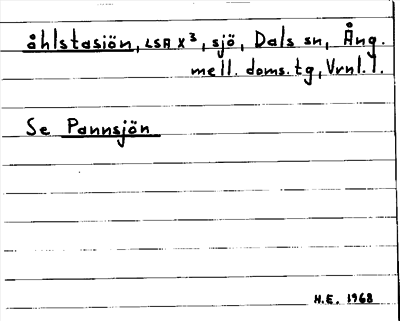 åhlstasjön, LSA X³, sjö, Dals sn, Ång.
mell. doms. tg, Vrnl. 1.
Se Pannsjön
H.E. 1968